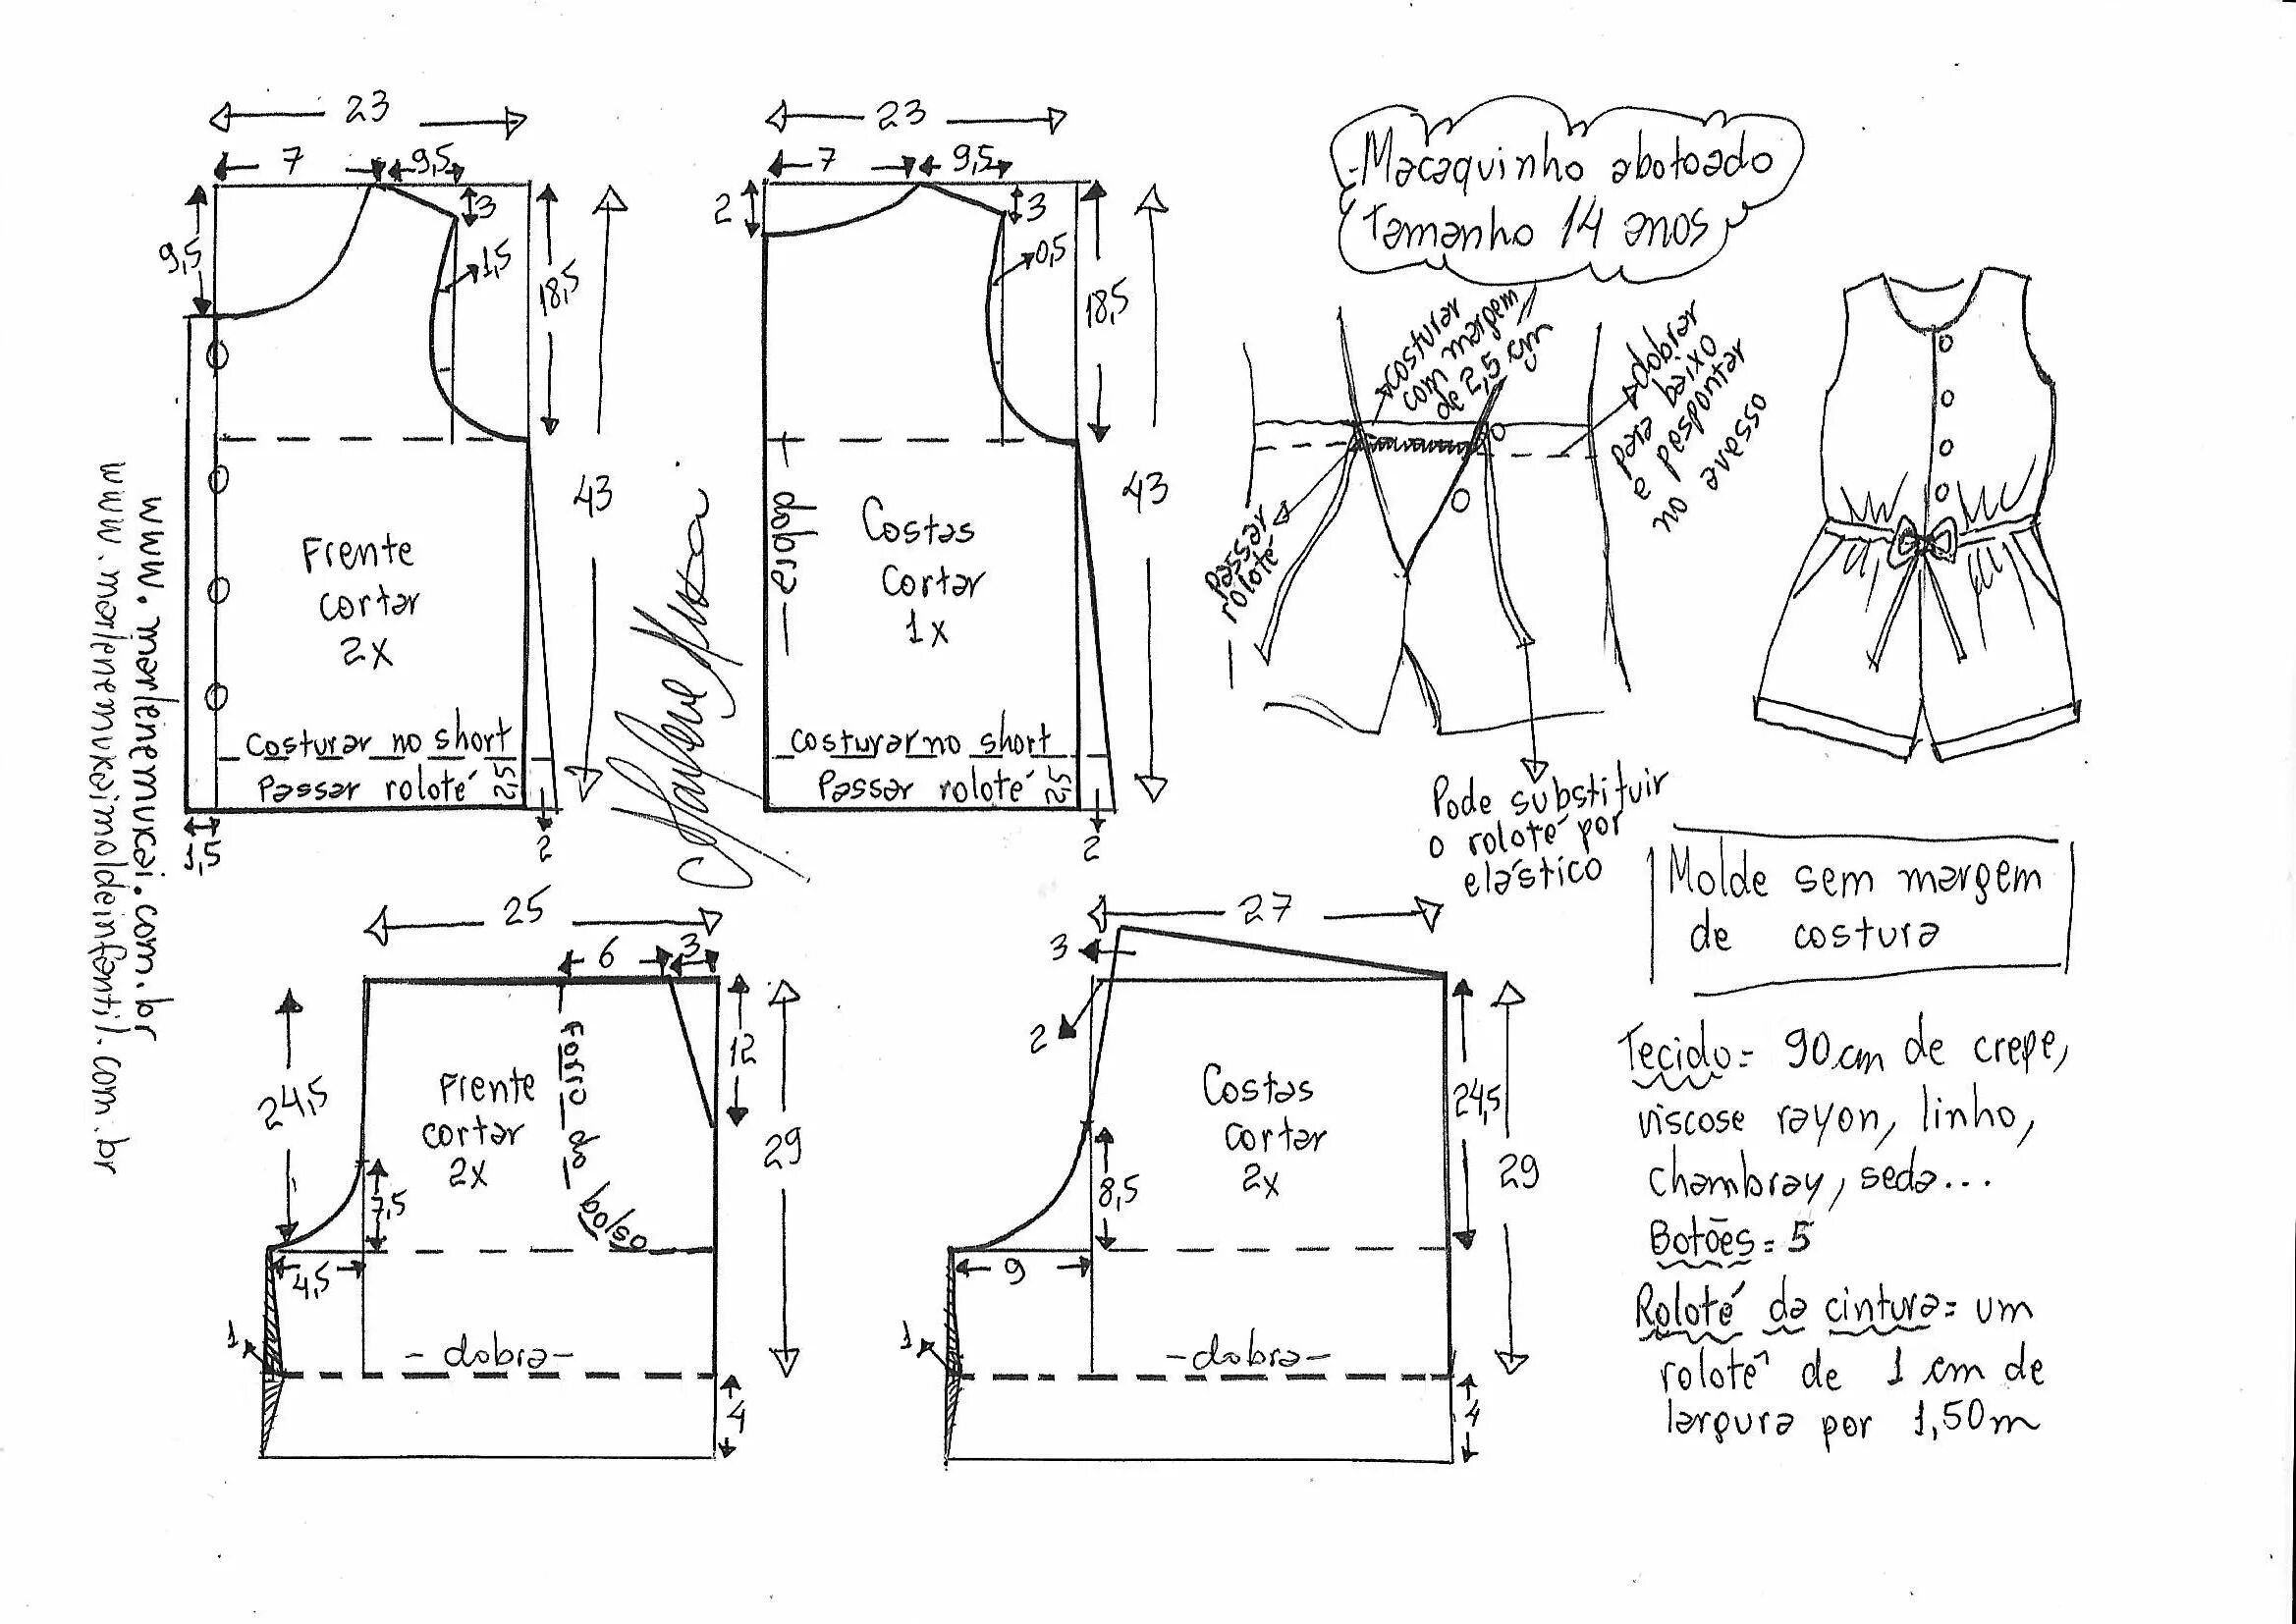 23
7
9,5
3
9,5
1,5
18,5
43
Frente
cortar
2x
Costurar no short
Passar roloté
2,5
1,5
2
23
7
9,5
2
3
0,5
18,5
43
dobra
Costas
Cortar
1x
costurar no short
Passar roloté
2,5
2
Marlene Mukai
www.marlenemukai.com.br
www.marlenemukaimoldeinfantil.com.br
Macaquinho abotoado
Tamanho 14 anos
costurar
com margem
de 2,5 cm
dobrar
para baixo
e pespontar
no avesso
Passar
roloté
Pode substituir
o roloté por
elástico
25
6
3
24,5
12
29
Frente
cortar
2x
Forro do bolso
7,5
4,5
1
-dobra-
4
27
3
2
Costas
cortar
2x
24,5
29
8,5
9
1
-dobra-
4
Molde sem margem
de costura
Tecido= 90cm de crepe,
viscose rayon, linho,
chambray, seda...
Botões= 5
Roloté da cintura= um
roloté de 1 cm de
largura por 1,50m